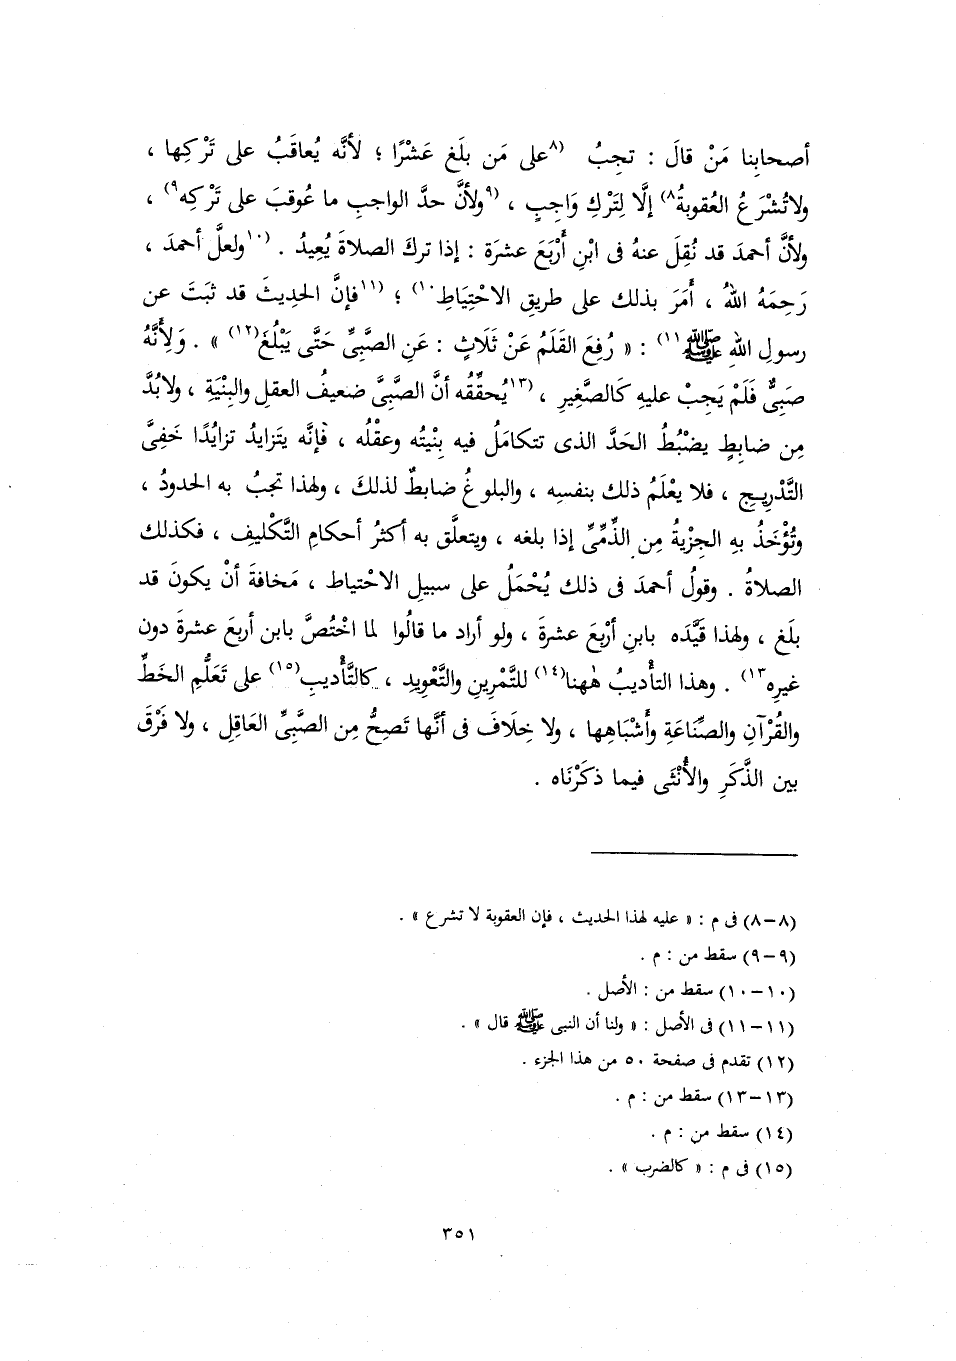 أصحابِنا مَنْ قالَ : تجبُ (٨على مَن بلَغ عَشْرًا ؛ لأنَّه يُعاقَبُ على تَرْكِها ،
ولا تُشْرَعُ العُقوبةُ٨) إلَّا لِتَرْكِ وَاجِبٍ ، (٩ولأنَّ حدَّ الواجبِ ما عُوقبَ على تَرْكِه٩) ،
ولأنَّ أحمدَ قد نُقِلَ عنهُ فى ابْنِ أَرْبَعَ عشرَة : إذا تركَ الصلاةَ يُعِيدُ . (١٠ولعلَّ أحمدَ ،
رَحِمَهُ اللهُ ، أَمَرَ بذلك على طريقِ الاحْتِيَاطِ١٠) ؛ (١١فإنَّ الحديثَ قد ثبَتَ عن
رسولِ اللهِ ﷺ١١) : « رُفِعَ القَلَمُ عَنْ ثَلَاثٍ : عَنِ الصَّبِىِّ حَتَّى يَبْلُغَ(١٢) » . وَلِأَنَّهُ
صَبِىٌّ فَلَمْ يَجِبْ عليهِ كَالصَّغِيرِ ، (١٣يُحقِّقُه أنَّ الصَّبِىَّ ضعيفُ العقلِ والبِنْيَةِ ، ولابُدَّ
مِن ضابِطٍ يضْبُطُ الحَدَّ الذى تتكامَلُ فيه بِنْيتُه وعقْلُه ، فإنَّه يتَزايدُ تزايُدًا خَفِىَّ
التَّدْرِيجِ ، فلا يعْلَمُ ذلك بنفسِه ، والبلوغُ ضابطٌ لذلكَ ، ولهذا تجبُ به الحدودُ ،
وتُؤْخَذُ بهِ الجِزْيةُ مِن الذِّمِّىِّ إذا بلغه ، ويتعلَّق به أكثرُ أحكامِ التَّكْليفِ ، فكذلك
الصلاةُ . وقولُ أحمدَ فى ذلك يُحْمَلُ على سبيلِ الاحْتياط ، مَخافةَ أنْ يكونَ قد
بلَغ ، ولهذا قيَّدَه بابنِ أرْبعَ عشرةَ ، ولو أراد ما قالُوا لما اخْتُصَّ بابن أربعَ عشرةَ دون
غيرِه١٣) . وهذا التأْديبُ هٰهنا(١٤) للتَّمْرِينِ والتَّعْوِيدِ ، كالتَّأْديبِ(١٥) على تَعَلُّمِ الخَطِّ
والقُرْآنِ والصِّنَاعَةِ وأَشْبَاهِها ، ولا خِلافَ فى أنَّها تَصِحُّ مِن الصَّبِىِّ العَاقِلِ ، ولا فَرْقَ
بين الذَّكَرِ والأُنْثَى فيما ذكَرْنَاه .
(٨-٨) فى م : « عليه لهذا الحديث ، فإن العقوبة لا تشرع » .
(٩-٩) سقط من : م .
(١٠-١٠) سقط من : الأصل .
(١١-١١) فى الأصل : « ولنا أن النبى ﷺ قال » .
(١٢) تقدم فى صفحة ٥٠ من هذا الجزء .
(١٣-١٣) سقط من : م .
(١٤) سقط من : م .
(١٥) فى م : « كالضرب » .
٣٥١